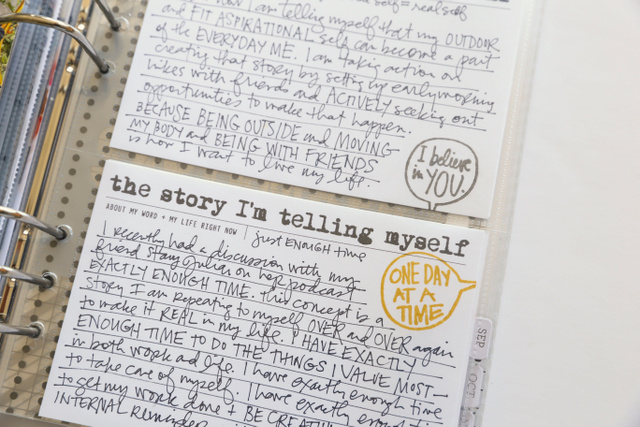 self = real self
now I am telling myself that my OUTDOOR
and FIT ASPIRATIONAL self can become a part
of the EVERYDAY ME. I am taking action on
creating that story by setting up early morning
hikes with friends and ACTIVELY seeking out
opportunities to make that happen.
BECAUSE BEING OUTSIDE and MOVING
MY BODY and BEING WITH FRIENDS
is how I want to live my life.
I believe
in YOU.
the story I'm telling myself
ABOUT MY WORD + MY LIFE RIGHT NOW
just ENOUGH time
I recently had a discussion with my
friend Stacy Julian on her podcast
EXACTLY ENOUGH TIME. This concept is a
story I am repeating to myself OVER and OVER again
to make it REAL in my life. I HAVE EXACTLY
ENOUGH TIME TO DO THE THINGS I VALUE MOST—
in both work and life. I have exactly enough time
to take care of myself. I have exactly enough time
to get my work done + BE CREATIVE
INTERNAL Reminder
ONE DAY
AT A
TIME
SEP
OCT